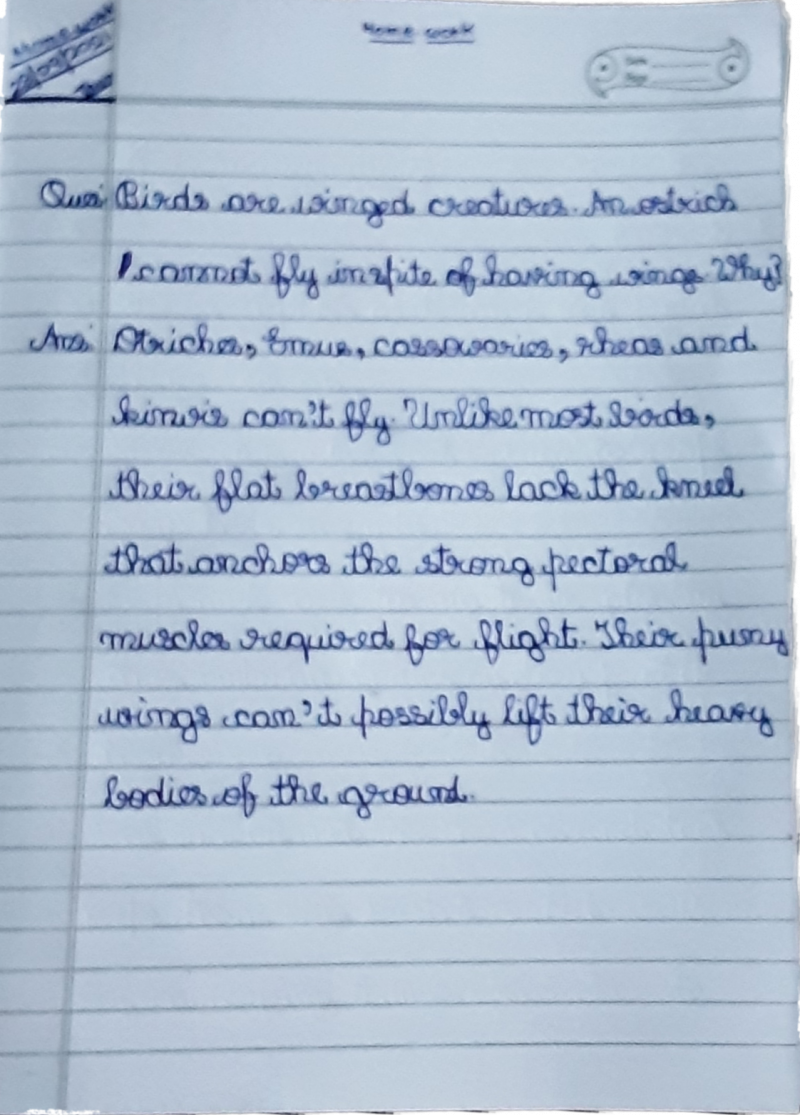 Home work
22/09/2021
Home work
Date
Page
Que: Birds are winged creatures. An ostrich
cannot fly inspite of having wings. Why?
Ans: Ostriches, Emus, cassowaries, rheas and
kiwis can't fly. Unlike most birds,
their flat breastbones lack the kneel
that anchors the strong pectoral
muscles required for flight. Their puny
wings can't possibly lift their heavy
bodies of the ground.